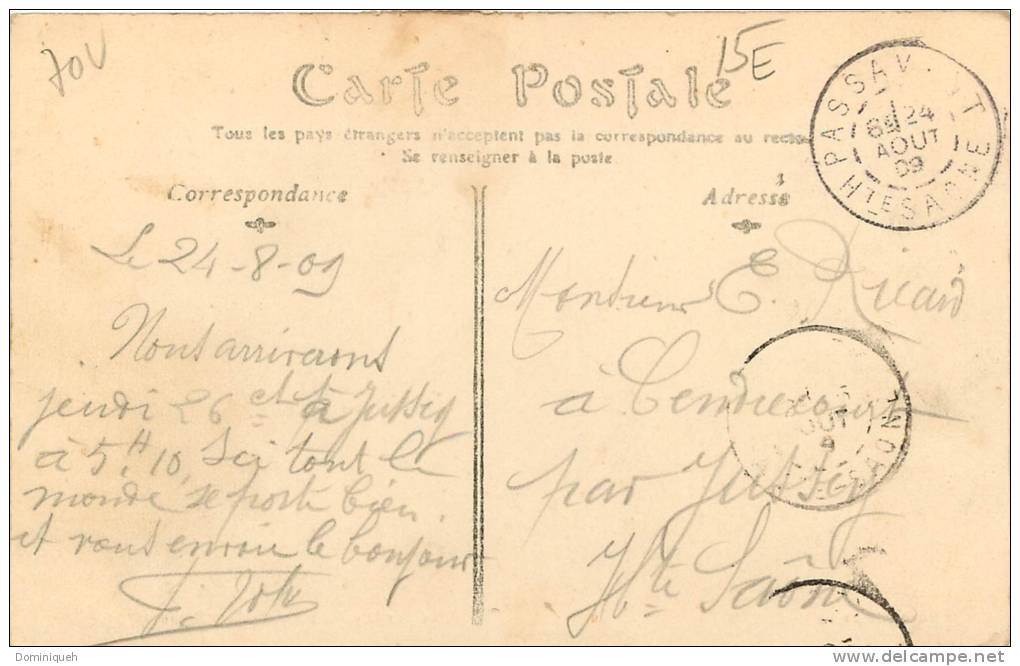 70V
15E
Carte Postale
Tous les pays étrangers n'acceptent pas la correspondance au recto
Se renseigner à la poste
PASSAV NT
24
AOUT
09
HTE SAONE
Correspondance
Adresse
Le 24-8-09
Nous arriverons
jeudi 26 ct à Jussey
à 5H 10, Ici tout le
monde se porte bien
et vous envoie le bonjour
Monsieur E. Ricard
à Cendrecourt
par Jussey
Hte Saône
OUT
SAONE
Dominiqueh